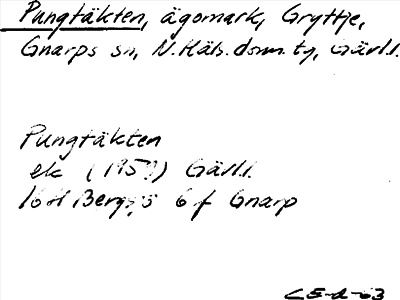 Pungtäkten, ägomark, Gryttje,
Gnarps sn, N. Häls. doms. tg, Gävl.l.
Pungtäkten
ek (1959) Gävl.l.
16H Bergsjö 6 f Gnarp